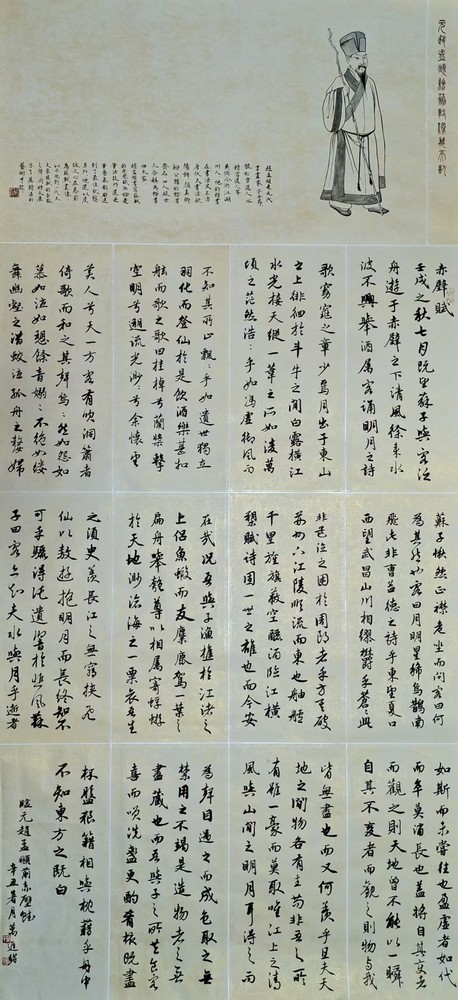 元趙孟頫繪蘇軾像
趙孟頫是元代
書畫家字子昂
號松雪道人等
吳興今浙江湖
在書法史上以
歐陽詢顏真卿
柳公權的楷書
齊名四人被世
人合稱為楷書
四大家
赤壁賦
壬戌之秋七月既望蘇子與客泛
舟遊于赤壁之下清風徐來水
波不興舉酒屬客誦明月之詩
歌窈窕之章少焉月出于東山
之上徘徊於斗牛之間白露橫江
水光接天縱一葦之所如凌萬
頃之茫然浩〻乎如馮虛御風而
不知其所止飄〻乎如遺世獨立
羽化而登仙於是飲酒樂甚扣
舷而歌之歌曰桂棹兮蘭槳擊
空明兮遡流光渺〻兮余懷望
美人兮天一方客有吹洞簫者
倚歌而和之其聲嗚〻然如怨如
慕如泣如愬餘音嫋〻不絕如縷
舞幽壑之潛蛟泣孤舟之嫠婦
蘇子愀然正襟危坐而問客曰何
為其然也客曰月明星稀烏鵲南
飛此非曹孟德之詩乎東望夏口
西望武昌山川相繆欝乎蒼〻此
非孟德之困於周郎者乎方其破
荊州下江陵順流而東也舳艫
千里旌旗蔽空釃酒臨江橫
槊賦詩固一世之雄也而今安
在哉況吾與子漁樵於江渚之
上侶魚蝦而友麋鹿駕一葉之
扁舟舉匏尊以相屬寄蜉蝣
於天地渺滄海之一粟哀吾生
之須臾羨長江之無窮挾飛
仙以遨遊抱明月而長終知不
可乎驟得託遺響於悲風蘇
子曰客亦知夫水與月乎逝者
如斯而未嘗往也盈虛者如代
而卒莫消長也蓋將自其變者
而觀之則天地曾不能以一瞬
自其不變者而觀之則物與我
皆無盡也而又何羨乎且夫天
地之間物各有主苟非吾之所
有雖一毫而莫取惟江上之清
風與山間之明月耳得之而
為聲目遇之而成色取之無
禁用之不竭是造物者之無
盡藏也而吾與子之所共食客
喜而笑洗盞更酌肴核既盡
杯盤狼藉相與枕藉乎舟中
不知東方之既白
臨元趙孟頫前赤壁賦
辛丑暑月萬進